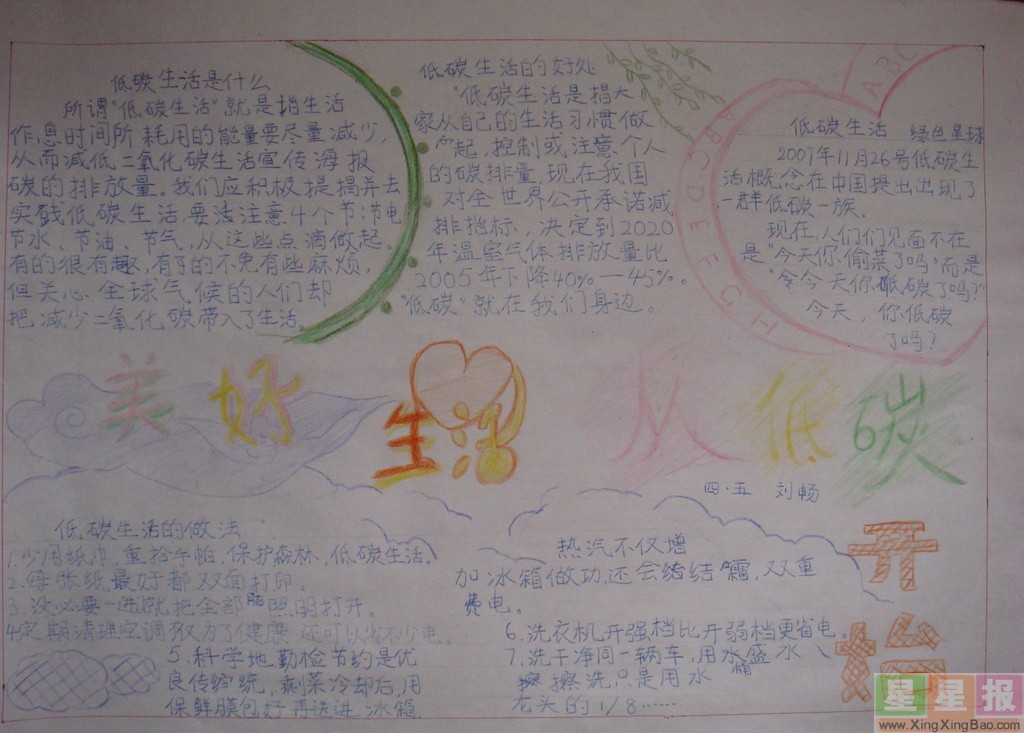 低碳生活是什么
所谓"低碳生活"就是指生活
作息时间所耗用的能量要尽量减少,
从而减低二氧化碳生活宣传海报
碳的排放量。我们应积极提揭并去
实践低碳生活,要注意4个节:节电
节水、节油、节气,从这些点滴做起。
有的很有趣,有的不免有些麻烦,
但关心全球气候的人们却
把减少二氧化碳带入了生活。
低碳生活的好处
"低碳生活是揭大
家从自己的生活习惯做
起,控制或注意个人
的碳排量,现在我国
对全世界公开承诺减
排指标,决定到2020
年温室气体排放量比
2005年下降40%—45%。
"低碳"就在我们身边。
ABC
ABCDEFGH
低碳生活 绿色星球
2007年11月26号低碳生
活概念在中国提出出现了
一群低碳一族。
现在,人们们见面不在
是"今天你偷菜了吗"而是
"令今天你低碳了吗?"
今天,你低碳
了吗?
美好生活 从低碳
四·五 刘畅
开始
低碳生活的做法
1.少用纸巾,重拾手帕,保护森林,低碳生活.
2.每张纸最好都双面打印.
3.没必要一进就把全部 照明打开。
4定期清理空调 为了健康 还可以省不少电.
5.科学地勤俭节约是优
良传统,剩菜冷却后,用
保鲜膜包好再送进冰箱.
热汽不仅增
加冰箱做功,还会结霜,双重
费电。
6.洗衣机开强档比开弱档更省电.
7.洗干净同一辆车,用水盛水、
擦洗只是用水
龙头的1/8……
星星报
www.XingXingBao.com